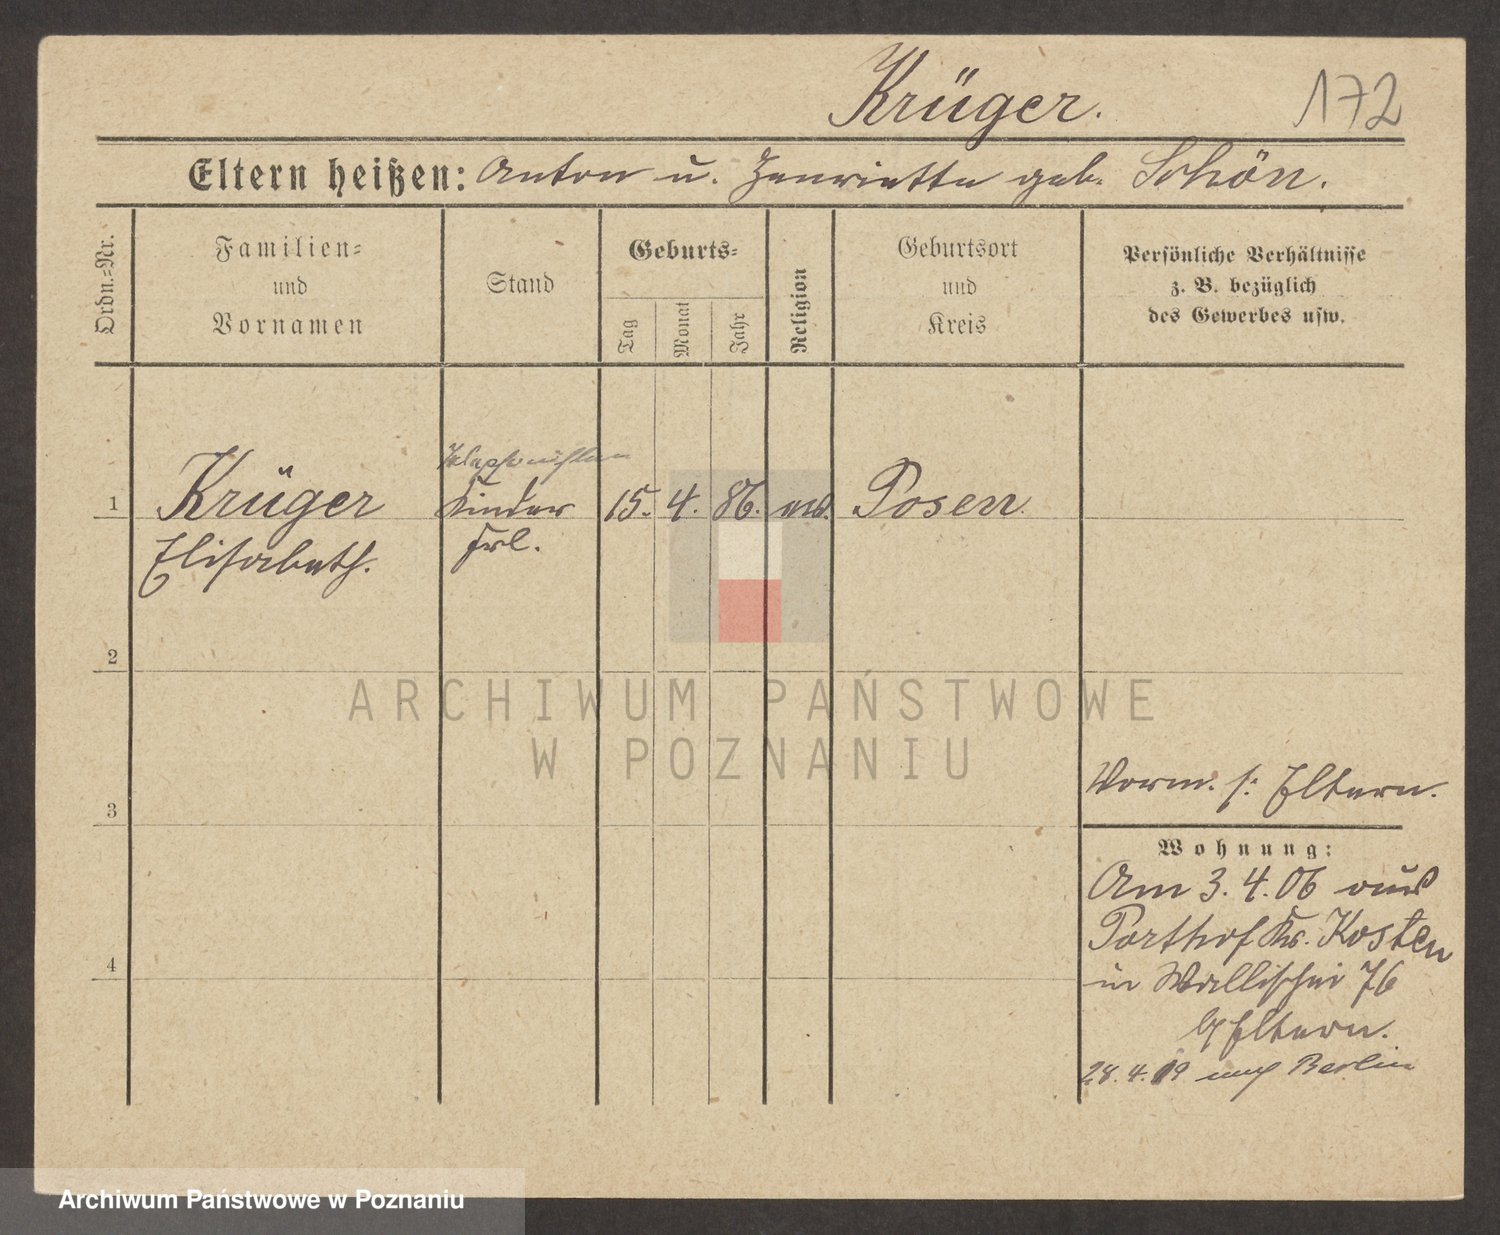 Krüger. 172
Eltern heißen: Anton u. Henriette geb. Schön.
Ordn.=Nr.
Familien=
und
Vornamen
Stand
Geburts=
Tag
Monat
Jahr
Religion
Geburtsort
und
Kreis
Persönliche Verhältnisse
z. B. bezüglich
des Gewerbes usw.
Telephonistin
1 Krüger Kinder 15. 4. 86. Posen.
Elisabeth. Frl.
2
ARCHIWUM PAŃSTWOWE
W POZNANIU
Vorm. s: Eltern.
3
Wohnung:
Am 3. 4. 06 aus
Kr. Kosten
4
in Wallischei 76
b/ Eltern.
28. 4. 19 nach Berlin
Archiwum Państwowe w Poznaniu